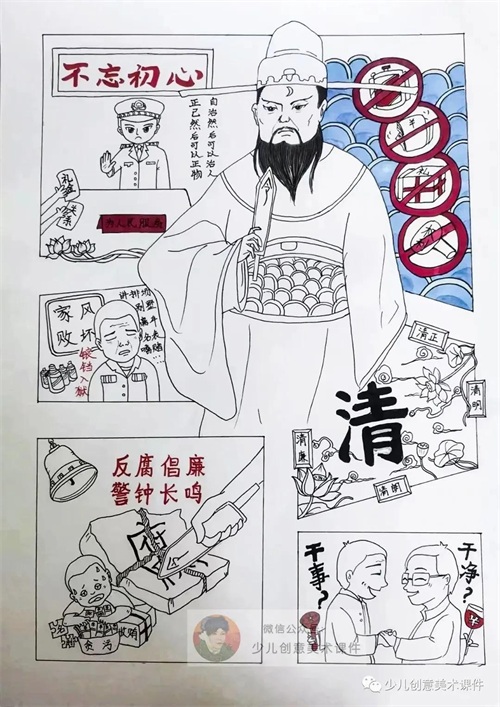 不忘初心
自治然后可以治人
正己然后可以正物
为人民服务
礼
家风
败坏
讲排场
锒铛入狱
清正
清明
清廉
清朗
清
反腐倡廉
警钟长鸣
贪污
干事?
干净?
微信公众号
少儿创意美术课件
少儿创意美术课件